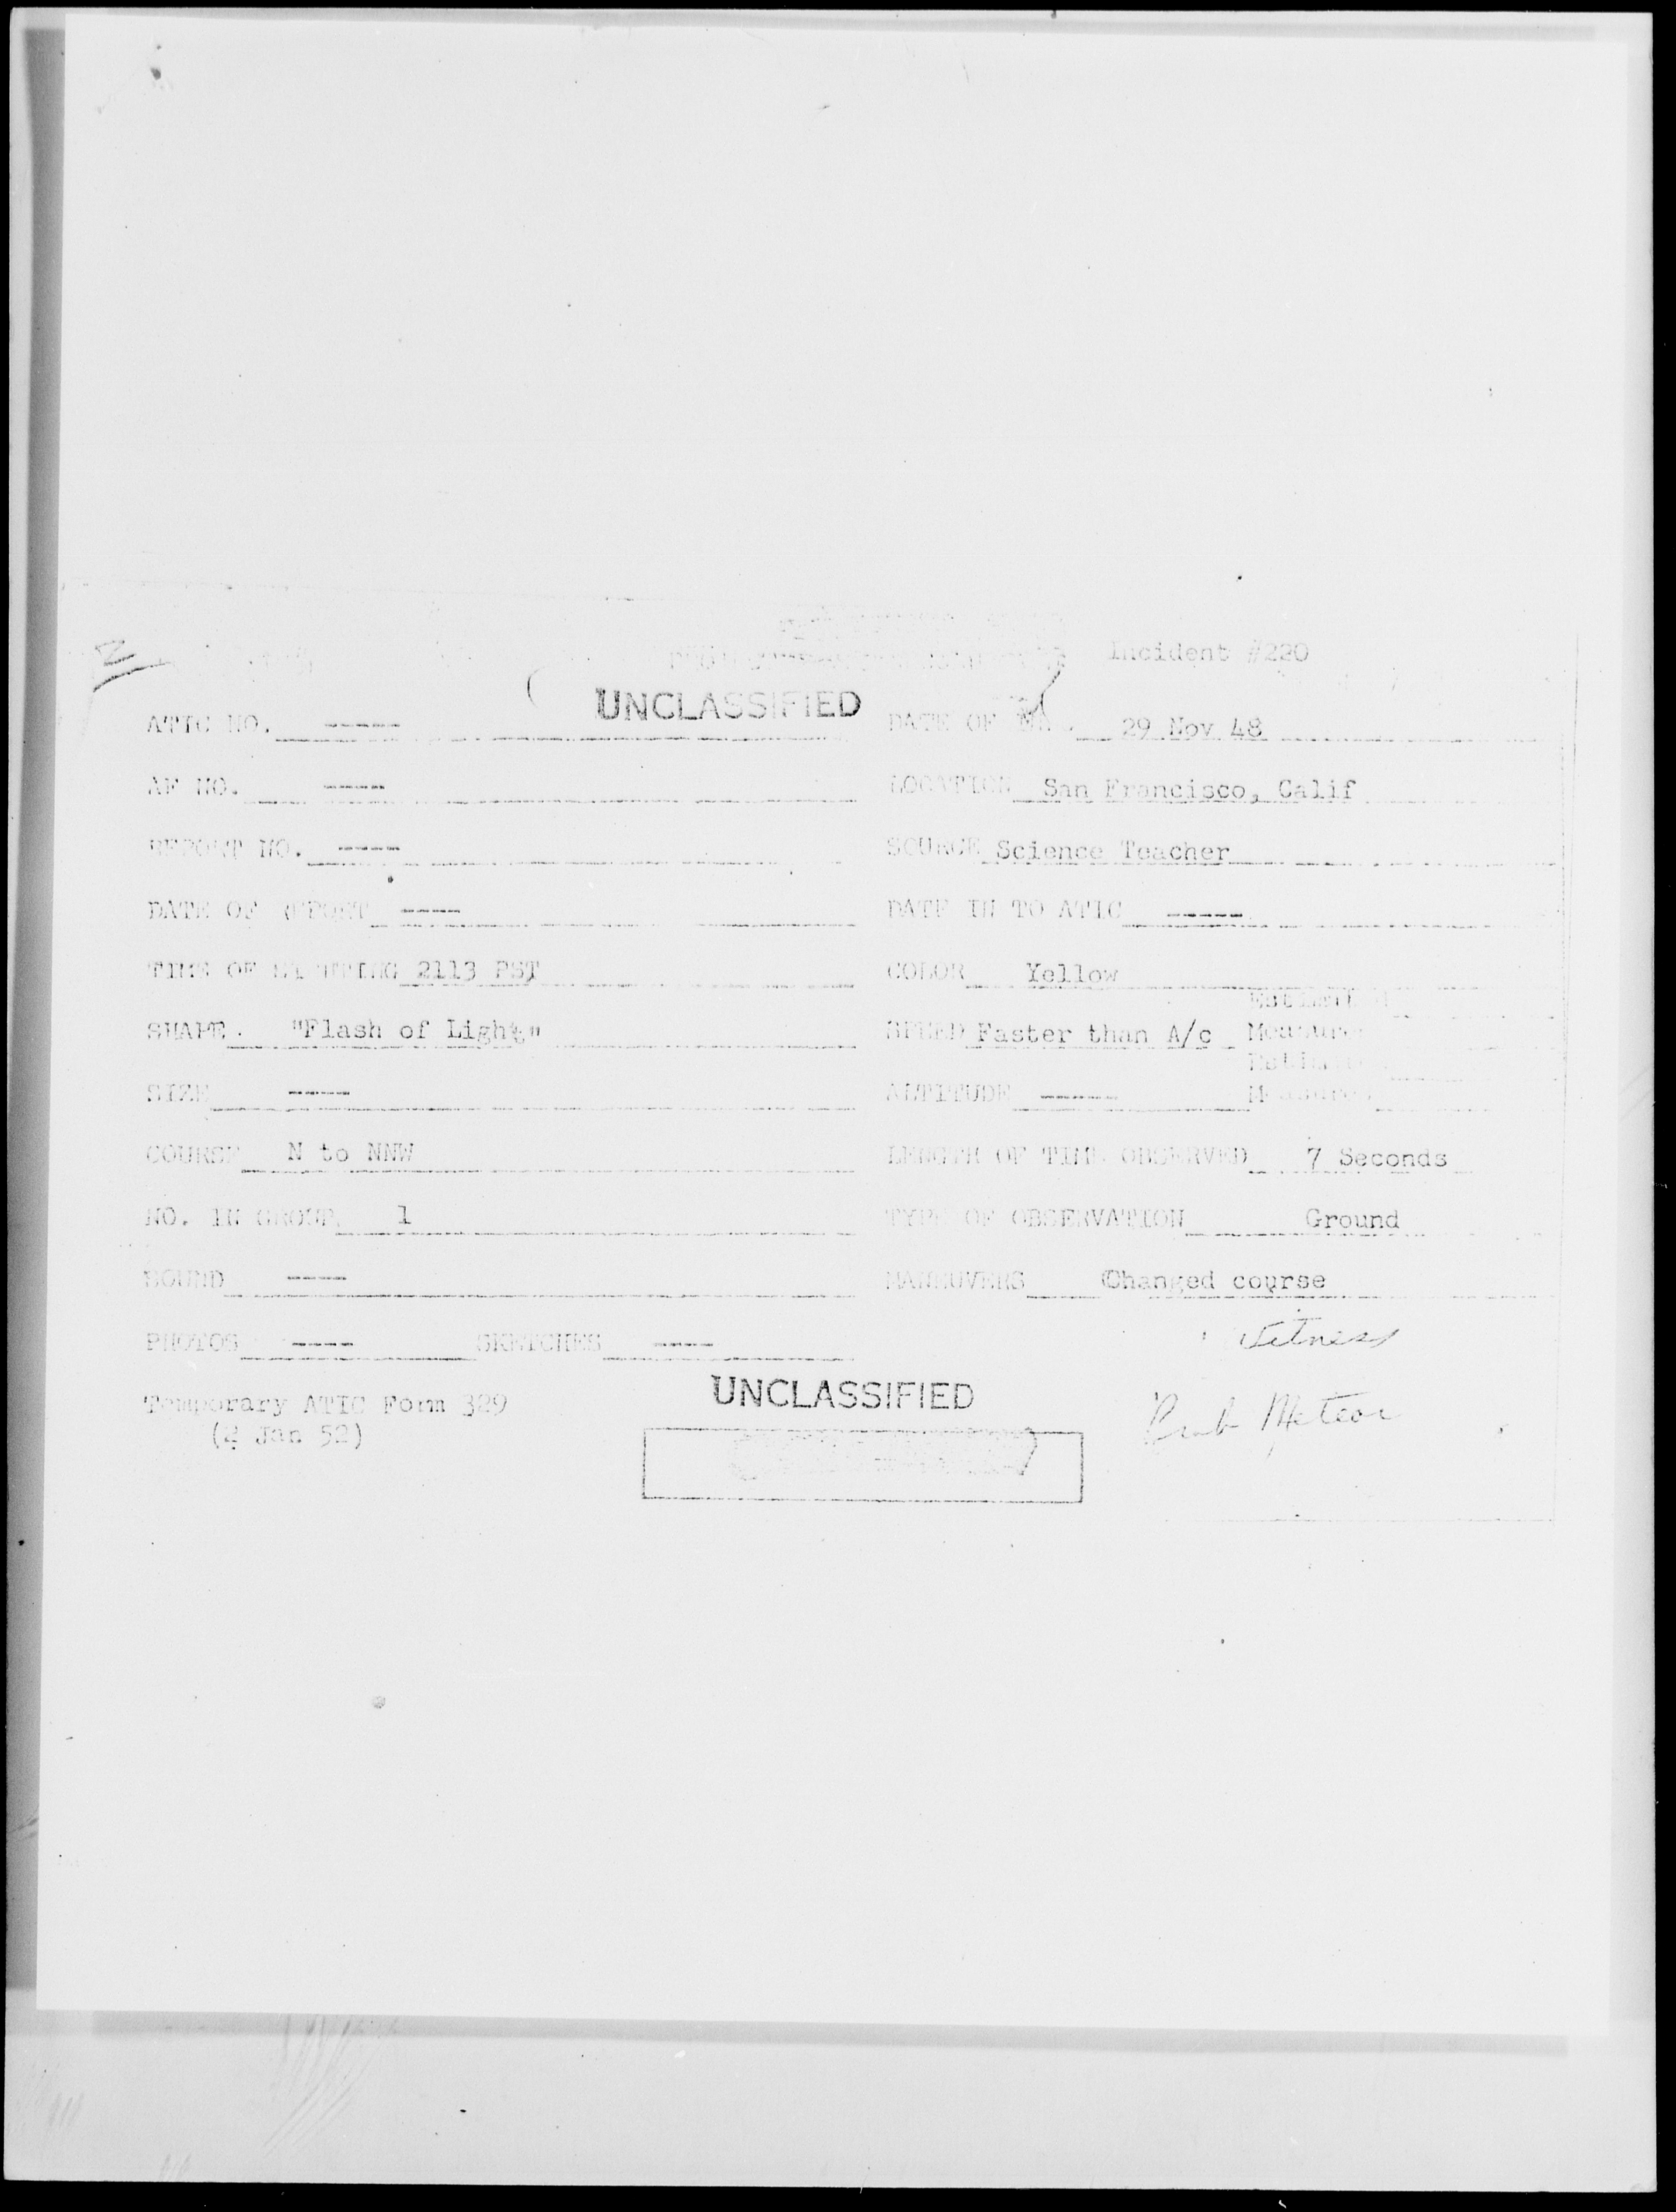 Incident #220
UNCLASSIFIED
ATIC NO. ----- DATE OF 29 Nov 48
AF NO. ---- LOCATION San Francisco, Calif
REPORT NO. ---- SOURCE Science Teacher
DATE OF REPORT ---- DATE IN TO ATIC -----
TIME OF SIGHTING 2113 PST COLOR Yellow
SHAPE "Flash of Light" SPEED Faster than A/c
SIZE ---- ALTITUDE -----
COURSE N to NNW LENGTH OF TIME OBSERVED 7 Seconds
NO. IN GROUP 1 TYPE OF OBSERVATION Ground
SOUND ---- MANEUVERS Changed course
PHOTOS ---- SKETCHES ----
Witness
Temporary ATIC Form 329
(2 Jan 52)
UNCLASSIFIED
Prob Meteor